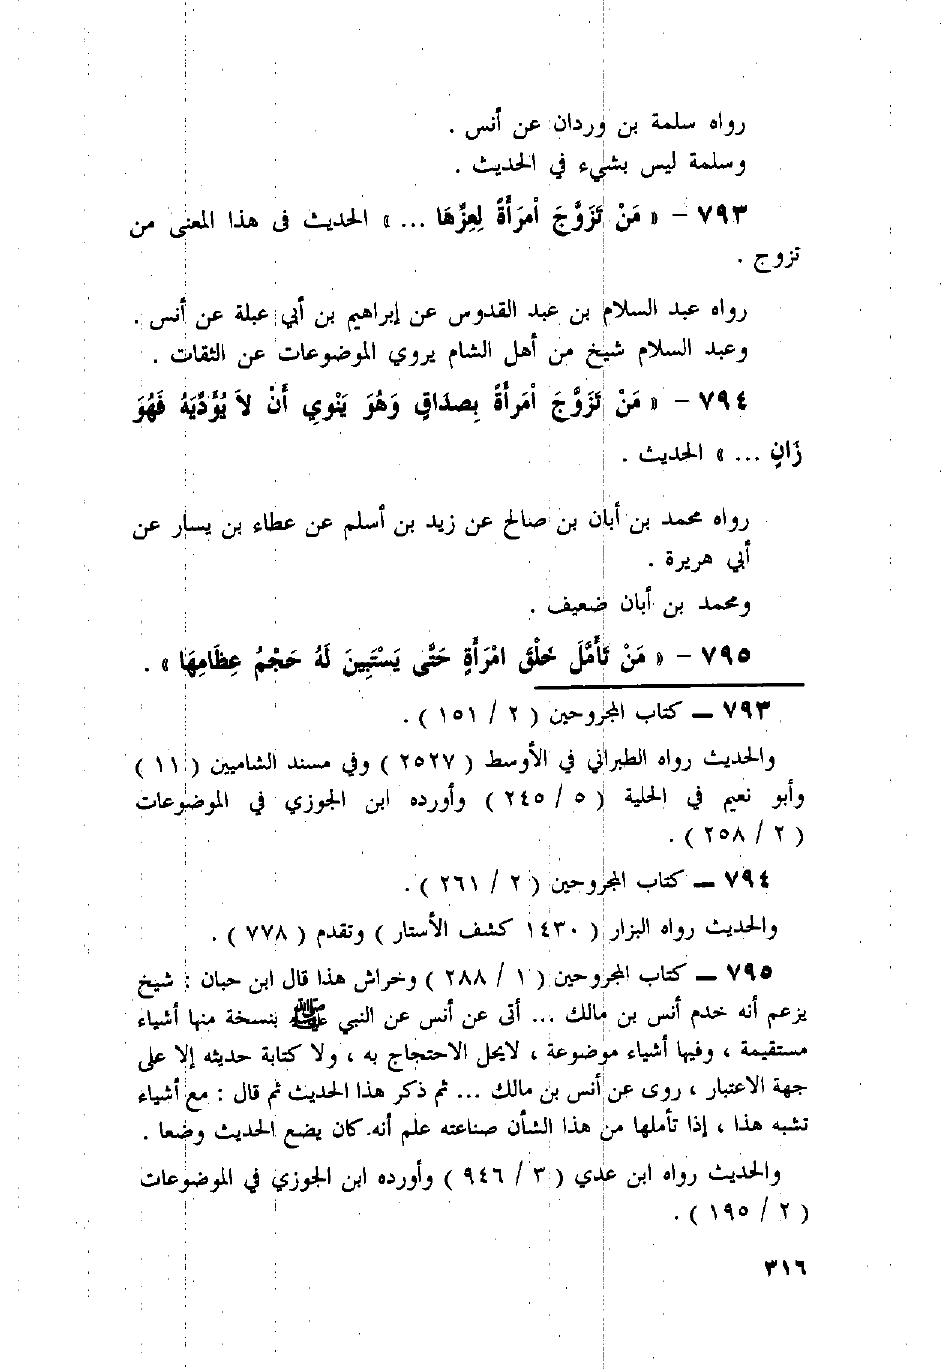 رواه سلمة بن وردان عن أنس .
وسلمة ليس بشيء في الحديث .
٧٩٣ – « مَنْ تَزَوَّجَ أمرَأَةً لِعِزِّهَا ... » الحديث فى هذا المعنى من
تزوج .
رواه عبد السلام بن عبد القدوس عن إبراهيم بن أبي عبلة عن أنس .
وعبد السلام شيخ من أهل الشام يروي الموضوعات عن الثقات .
٧٩٤ – « مَنْ تَزَوَّجَ أمَرأَةً بِصدَاقٍ وَهُوَ يَنْوِي أَنْ لاَ يُؤَدِّيَهُ فَهُوَ
زَانٍ ... » الحديث .
رواه محمد بن أبان بن صالح عن زيد بن أسلم عن عطاء بن يسار عن
أبي هريرة .
ومحمد بن أبان ضعيف .
٧٩٥ – « مَنْ تَأَمَّلَ خَلْقَ امْرَأَةٍ حَتَّى يَسْتَبِينَ لَهُ حَجْمُ عِظَامِهَا » .
٧٩٣ ــ كتاب المجروحين ( ٢ / ١٥١ ) .
والحديث رواه الطبراني في الأوسط ( ٢٥٢٧ ) وفي مسند الشاميين ( ١١ )
وأبو نعيم في الحلية ( ٥ / ٢٤٥ ) وأورده ابن الجوزي في الموضوعات
( ٢ / ٢٥٨ ) .
٧٩٤ ــ كتاب المجروحين ( ٢ / ٢٦١ ) .
والحديث رواه البزار ( ١٤٣٠ كشف الأستار ) وتقدم ( ٧٧٨ ) .
٧٩٥ ــ كتاب المجروحين ( ١ / ٢٨٨ ) وخراش هذا قال ابن حبان : شيخ
يزعم أنه خدم أنس بن مالك ... أتى عن أنس عن النبي ﷺ بنسخة منها أشياء
مستقيمة ، وفيها أشياء موضوعة ، لايحل الاحتجاج به ، ولا كتابة حديثه إلا على
جهة الاعتبار ، روى عن أنس بن مالك ... ثم ذكر هذا الحديث ثم قال : مع أشياء
تشبه هذا ، إذا تأملها من هذا الشأن صناعته علم أنه كان يضع الحديث وضعا .
والحديث رواه ابن عدي ( ٣ / ٩٤٦ ) وأورده ابن الجوزي في الموضوعات
( ٢ / ١٩٥ ) .
٣١٦